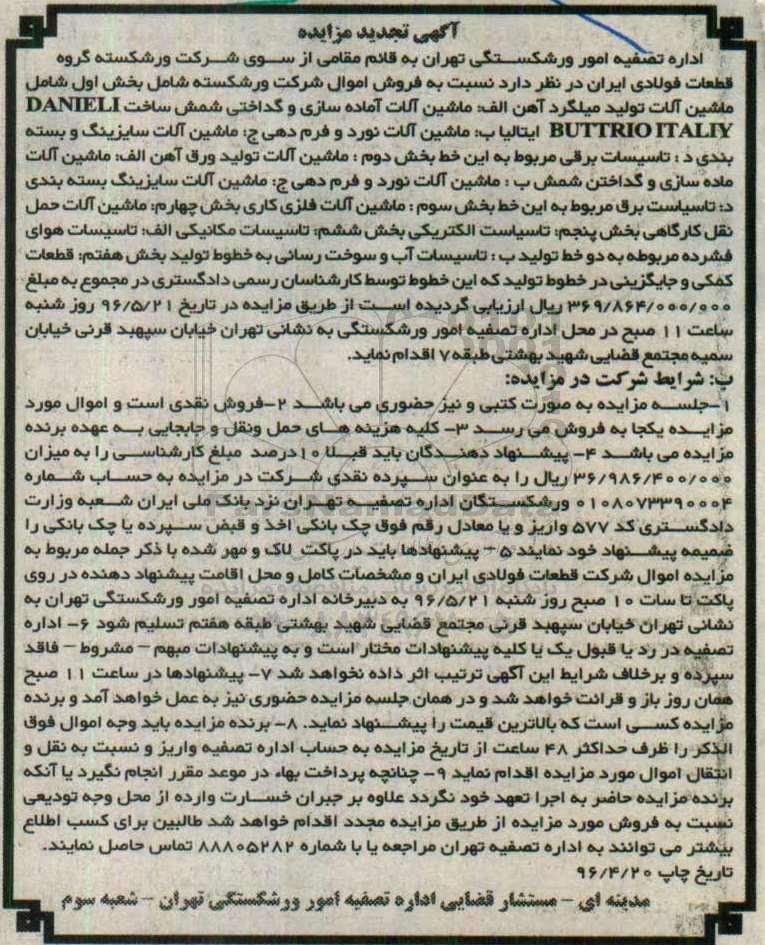 آگهی تجدید مزایده
اداره تصفیه امور ورشکستگی تهران به قائم مقامی از سوی شرکت ورشکسته گروه
قطعات فولادی ایران در نظر دارد نسبت به فروش اموال شرکت ورشکسته شامل بخش اول شامل
ماشین آلات تولید میلگرد آهن الف: ماشین آلات آماده سازی و گداختی شمش ساخت DANIELI
BUTTRIO ITALIY ایتالیا ب: ماشین آلات نورد و فرم دهی ج: ماشین آلات سایزینگ و بسته
بندی د : تاسیسات برقی مربوط به این خط بخش دوم : ماشین آلات تولید ورق آهن الف: ماشین آلات
ماده سازی و گداختن شمش ب : ماشین آلات نورد و فرم دهی ج: ماشین آلات سایزینگ بسته بندی
د: تاسیاست برق مربوط به این خط بخش سوم : ماشین آلات فلزی کاری بخش چهارم: ماشین آلات حمل
نقل کارگاهی بخش پنجم: تاسیاست الکتریکی بخش ششم: تاسیسات مکانیکی الف: تاسیسات هوای
فشرده مربوطه به دو خط تولید ب : تاسیسات آب و سوخت رسانی به خطوط تولید بخش هفتم: قطعات
کمکی و جایگزینی در خطوط تولید که این خطوط توسط کارشناسان رسمی دادگستری در مجموع به مبلغ
۳۶۹/۸۶۴/۰۰۰/۰۰۰ ریال ارزیابی گردیده است از طریق مزایده در تاریخ ۹۶/۵/۲۱ روز شنبه
ساعت ۱۱ صبح در محل اداره تصفیه امور ورشکستگی به نشانی تهران خیابان سپهبد قرنی خیابان
سمیه مجتمع قضایی شهید بهشتی طبقه ۷ اقدام نماید.
ب: شرایط شرکت در مزایده:
۱-جلسه مزایده به صورت کتبی و نیز حضوری می باشد ۲-فروش نقدی است و اموال مورد
مزایده یکجا به فروش می رسد ۳- کلیه هزینه های حمل ونقل و جابجایی به عهده برنده
مزایده می باشد ۴- پیشنهاد دهندگان باید قبلا ۱۰درصد مبلغ کارشناسی را به میزان
۳۶/۹۸۶/۴۰۰/۰۰۰ ریال را به عنوان سپرده نقدی شرکت در مزایده به حساب شماره
۰۱۰۸۰۷۳۳۹۰۰۰۴ ورشکستگان اداره تصفیه تهران نزد بانک ملی ایران شعبه وزارت
دادگستری کد ۵۷۷ واریز و یا معادل رقم فوق چک بانکی اخذ و قبض سپرده یا چک بانکی را
ضمیمه پیشنهاد خود نمایند ۵- پیشنهادها باید در پاکت لاک و مهر شده با ذکر جمله مربوط به
مزایده اموال شرکت قطعات فولادی ایران و مشخصات کامل و محل اقامت پیشنهاد دهنده در روی
پاکت تا سات ۱۰ صبح روز شنبه ۹۶/۵/۲۱ به دبیرخانه اداره تصفیه امور ورشکستگی تهران به
نشانی تهران خیابان سپهبد قرنی مجتمع قضایی شهید بهشتی طبقه هفتم تسلیم شود ۶- اداره
تصفیه در رد یا قبول یک یا کلیه پیشنهادات مختار است و به پیشنهادات مبهم – مشروط – فاقد
سپرده و برخلاف شرایط این آگهی ترتیب اثر داده نخواهد شد ۷- پیشنهادها در ساعت ۱۱ صبح
همان روز باز و قرائت خواهد شد و در همان جلسه مزایده حضوری نیز به عمل خواهد آمد و برنده
مزایده کسی است که بالاترین قیمت را پیشنهاد نماید. ۸- برنده مزایده باید وجه اموال فوق
الذکر را ظرف حداکثر ۴۸ ساعت از تاریخ مزایده به حساب اداره تصفیه واریز و نسبت به نقل و
انتقال اموال مورد مزایده اقدام نماید ۹- چنانچه پرداخت بهاء در موعد مقرر انجام نگیرد یا آنکه
برنده مزایده حاضر به اجرا تعهد خود نگردد علاوه بر جبران خسارت وارده از محل وجه تودیعی
نسبت به فروش مورد مزایده از طریق مزایده مجدد اقدام خواهد شد طالبین برای کسب اطلاع
بیشتر می توانند به اداره تصفیه تهران مراجعه یا با شماره ۸۸۸۰۵۲۸۲ تماس حاصل نمایند.
تاریخ چاپ ۹۶/۴/۲۰
مدینه ای – مستشار قضایی اداره تصفیه امور ورشکستگی تهران – شعبه سوم